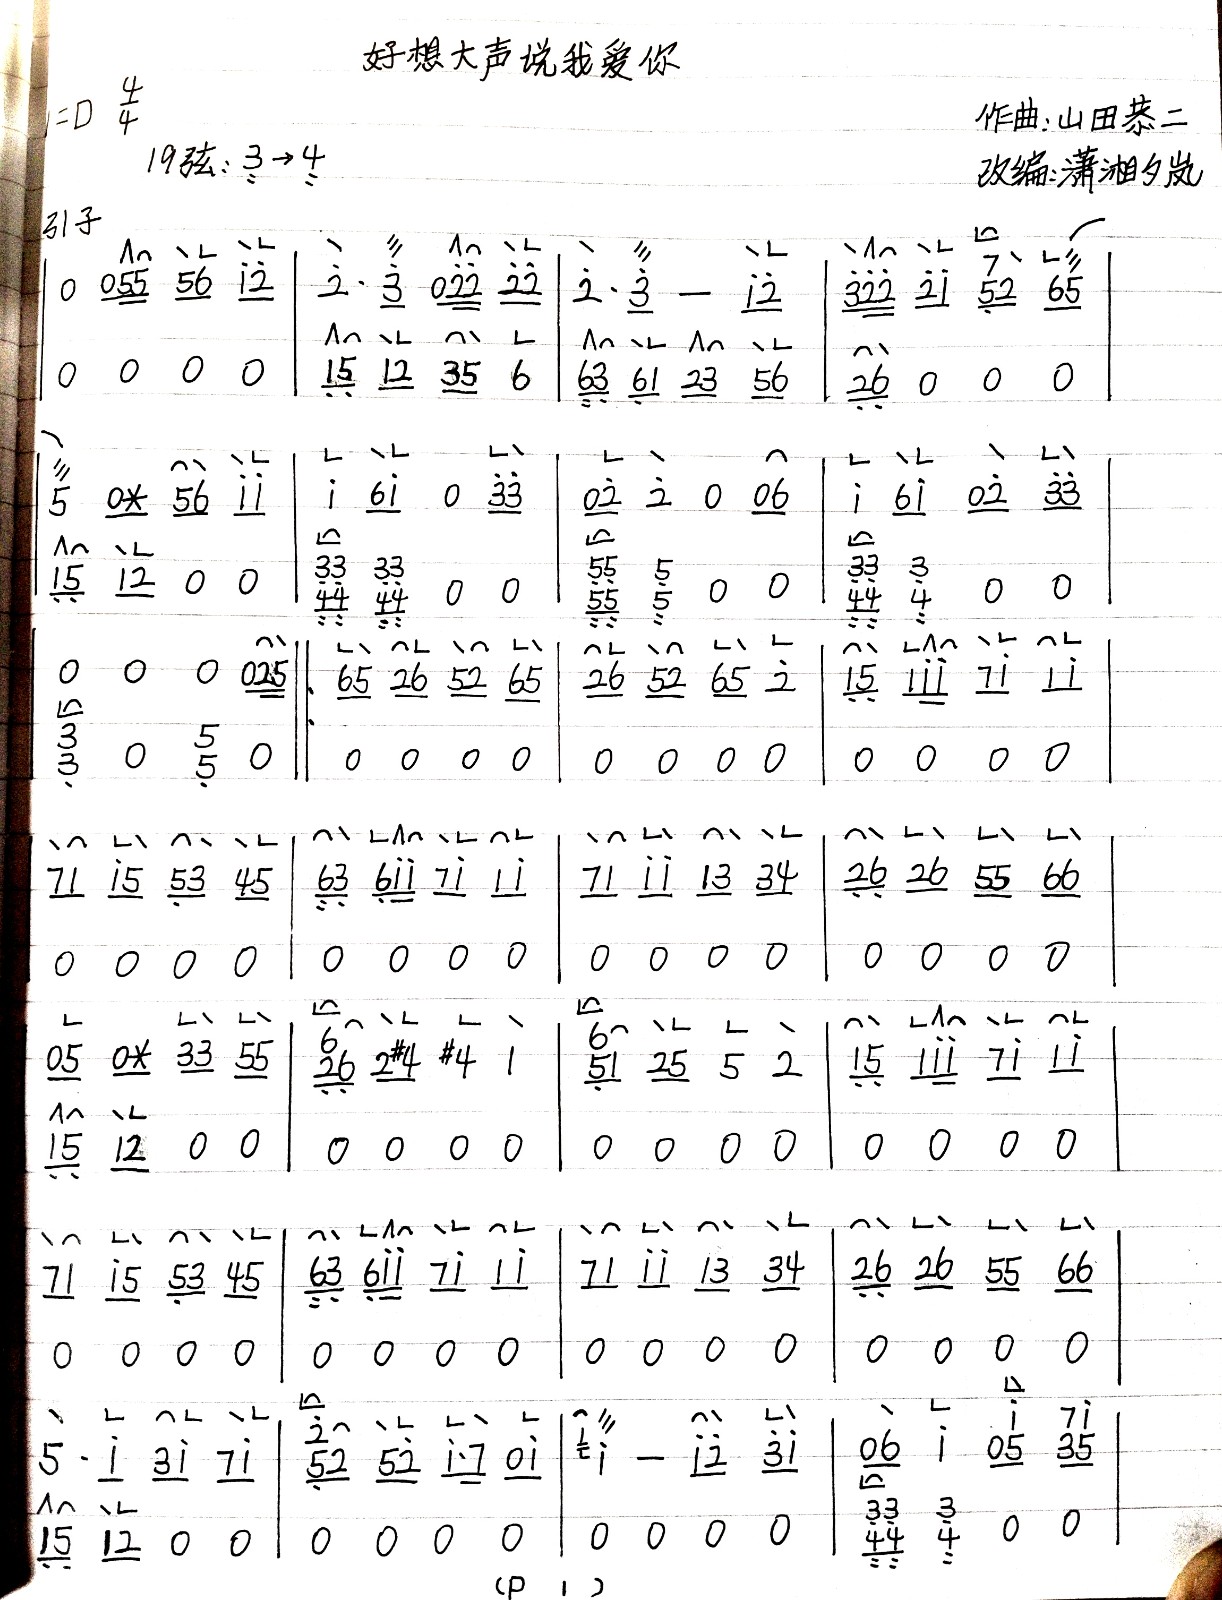 好想大声说我爱你
1=D 4/4
作曲:山田恭二
19弦: 3→4
改编:潇湘夕岚
引子
0 055 56 12 | 2·3 022 22 | 2·3 — 12 | 322 21 752 65 |
0 0 0 0 | 15 12 35 6 | 63 61 23 56 | 26 0 0 0 |
5 0* 56 11 | 1 61 0 33 | 02 2 0 06 | 1 61 02 33 |
15 12 0 0 | 33 33 0 0 | 55 5 0 0 | 33 3 0 0 |
44 44 | 55 5 | 44 4
0 0 0 025 || 65 26 52 65 | 26 52 65 2 | 15 111 71 11 |
3 0 5 0 || 0 0 0 0 | 0 0 0 0 | 0 0 0 0 |
3 5
71 15 53 45 | 63 611 71 11 | 71 11 13 34 | 26 26 55 66 |
0 0 0 0 | 0 0 0 0 | 0 0 0 0 | 0 0 0 0 |
6 | 6
05 0* 33 55 | 26 2#4 #4 1 | 51 25 5 2 | 15 111 71 11 |
15 12 0 0 | 0 0 0 0 | 0 0 0 0 | 0 0 0 0 |
71 15 53 45 | 63 611 71 11 | 71 11 13 34 | 26 26 55 66 |
0 0 0 0 | 0 0 0 0 | 0 0 0 0 | 0 0 0 0 |
2 | 1 71
5·1 31 71 | 52 52 1·7 01 | 1 — 12 31 | 06 1 05 35 |
15 12 0 0 | 0 0 0 0 | 0 0 0 0 | 33 3 0 0 |
44 4
(P 1)